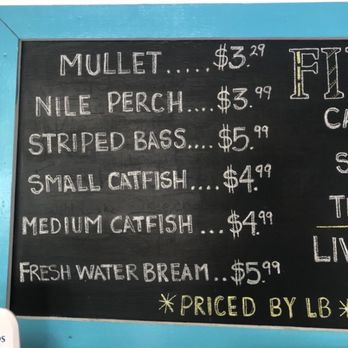 MULLET.....$3.29
NILE PERCH....$3.99
STRIPED BASS....$5.99
SMALL CATFISH....$4.99
MEDIUM CATFISH ...$4.99
FRESH WATER BREAM..$5.99
*PRICED BY LB*